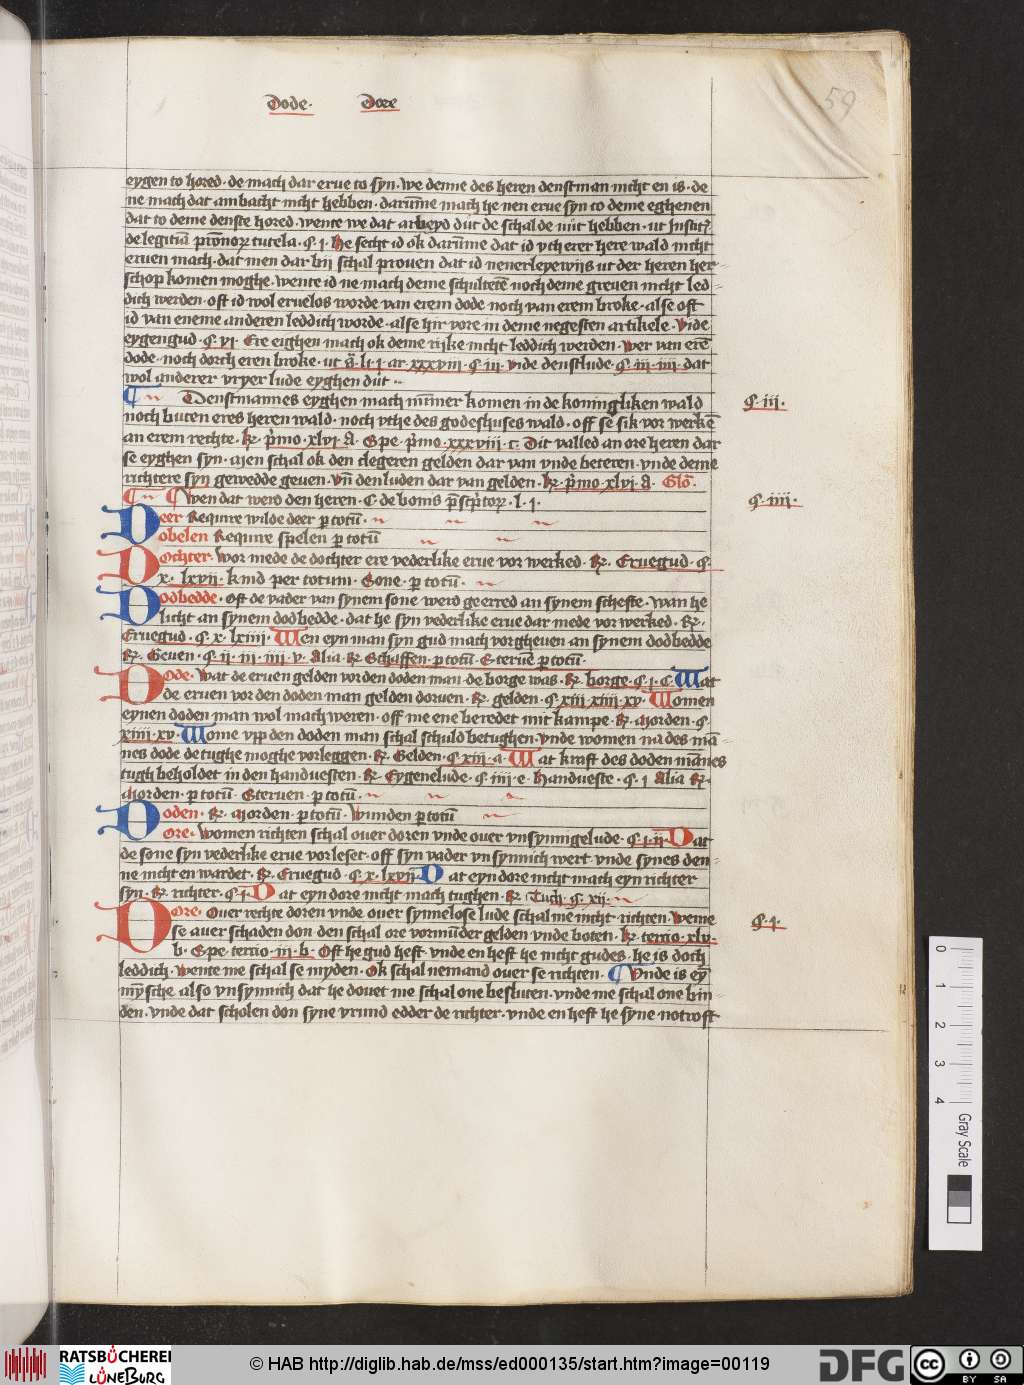 Dode· Dore
59
eygen to hored· de mach dar erue to syn· we denne des heren denstman nicht en is· de
ne mach dat ambacht nicht hebben· darūme mach he nen erue syn to deme eghenen
dat to deme denste hored· wente we dat arbeyd dūt de schal de nüt hebben· ut Instit̄
de legitiā tutela· §· j· He secht id ok darūme dat id vth erer here wald nicht
eruen mach· dat men dar bij schal prouen dat id nenerleyewijs ut der heren her
schop komen moghe· wente id ne mach deme schulteten noch deme greuen nicht led
dich werden· oft id wol eruelos worde van erem dode noch van erem broke· alse oft
id van eneme anderen leddich worde· alse hir vore in deme negesten artikele· Vide
eygengud· §· vj· Ere eighen mach ok deme rijke nicht leddich werden· wer van erē
dode· noch dorch eren broke· ut ā· li· j· ar xxxviij· §· iij· vide denstlude· §· iij· iiij· dat
wol anderer vryer lude eyghen dūt
Denstmannes eyghen mach nūmer komen in de koningliken wald
§· iij·
noch buten eres heren wald· noch vthe des godeshuses wald· off se sik vor werkē
an erem rechte· R̄· p̄mo· xlvj· A· Spe· p̄mo· xxxviij· c· Dit valled an ore heren dar
se eyghen syn· Men schal ok den clegeren gelden dar van vnde beteren· vnde deme
richtere syn gewedde geuen· Vn̄ den luden dar van gelden· R̄· p̄mo· xlvj· A· Glo·
Wen dat werd den heren· C· de bonis · l· j·
§· iiij·
Deer Require wilde deer p totū·
Dobelen Require spelen p totū
Dochter· Wor mede de dochter ere vederlike erue vor werked· R̄· Eruegud· §·
x· lxvij· kind per totum· Sone· p totū·
Dodbedde· Oft de vader van synem sone werd geerred an synem schefte· wan he
licht an synem dodbedde· dat he syn vederlike erue dar mede vor werked· R̄·
Eruegud· §· x· lxiiij· Wen eyn man syn gud mach vorgheuen an synem dodbedde
R̄· Geuen· §· ij· iij· iiij· v· Alia R̄ Schaffen· p totū· Steruē p totū·
Dode· Wat de eruen gelden vor den doden man· de borge was· R̄ borge· §· j· C· Wat
de eruen vor den doden man gelden doruen· R̄· gelden· §· xiij xiiij xv· Women
eynen doden man wol mach weren· off me ene beredet mit kampe· R̄· Morden· §·
xiiij· xv· Wome vpp den doden man schal schuld betughen· vnde women na des mā
nes dode de tughe moghe vorleggen· R̄· Gelden· §· xiij· a· Wat kraft des doden mānes
tugh beholdet in den handuesten· R̄· Eygenelude· §· iiij· e· Handueste· §· j· Alia R̄·
Morden· p totū· Steruen· p totū·
Doden· R̄· Morden· p totū· Wunden p totū
Dore· Women richten schal ouer doren vnde ouer vnsynnigelude· §· j· ij· Dat
de sone syn vederlike erue vor leset· off syn vader vnsynnich wert· vnde synes den
ne nicht en wardet· R̄· Eruegud· §· x· lxvij· Dat eyn dore nicht mach eyn richter
syn· R̄· richter· §· j· Dat eyn dore nicht mach tughen· R̄· Tuch· §· xij·
Dore· Ouer rechte doren vnde ouer synnelose lude schal me nicht richten· Weme
§· j·
se auer schaden don den schal ore vormūder gelden vnde boten· R̄· tercio· xlv·
b· Spe· tercio· iij· b· Oft he gud heft· vnde en heft he nicht gudes· he is doch
leddich· wente me schal se myden· Ok schal nemand ouer se richten· Vnde is eȳ
mȳsche also vnsynnich dat he douet me schal one besluten· vnde me schal one bin
den· vnde dat scholen don syne vrund edder de richter· vnde en heft he syne notroft
0
1
2
3
4
Gray Scale
RATSBÜCHEREI
LÜNEBURG
© HAB http://diglib.hab.de/mss/ed000135/start.htm?image=00119
DFG
cc BY SA